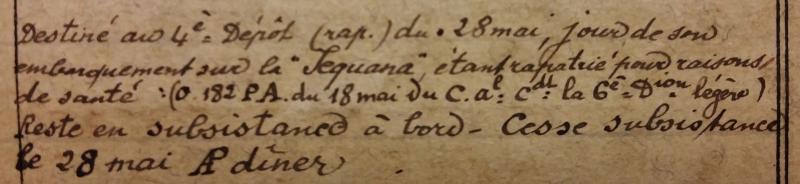 Destiné au 4è Dépôt (rap.) du 28 mai, jour de son
embarquement sur la "Sequana", étant rapatrié pour raisons
de santé : (O. 182 P.A. du 18 mai du C. al: cdt la 6è Dion légère)
Reste en subsistance à bord - Cesse subsistance
le 28 mai AP dîner